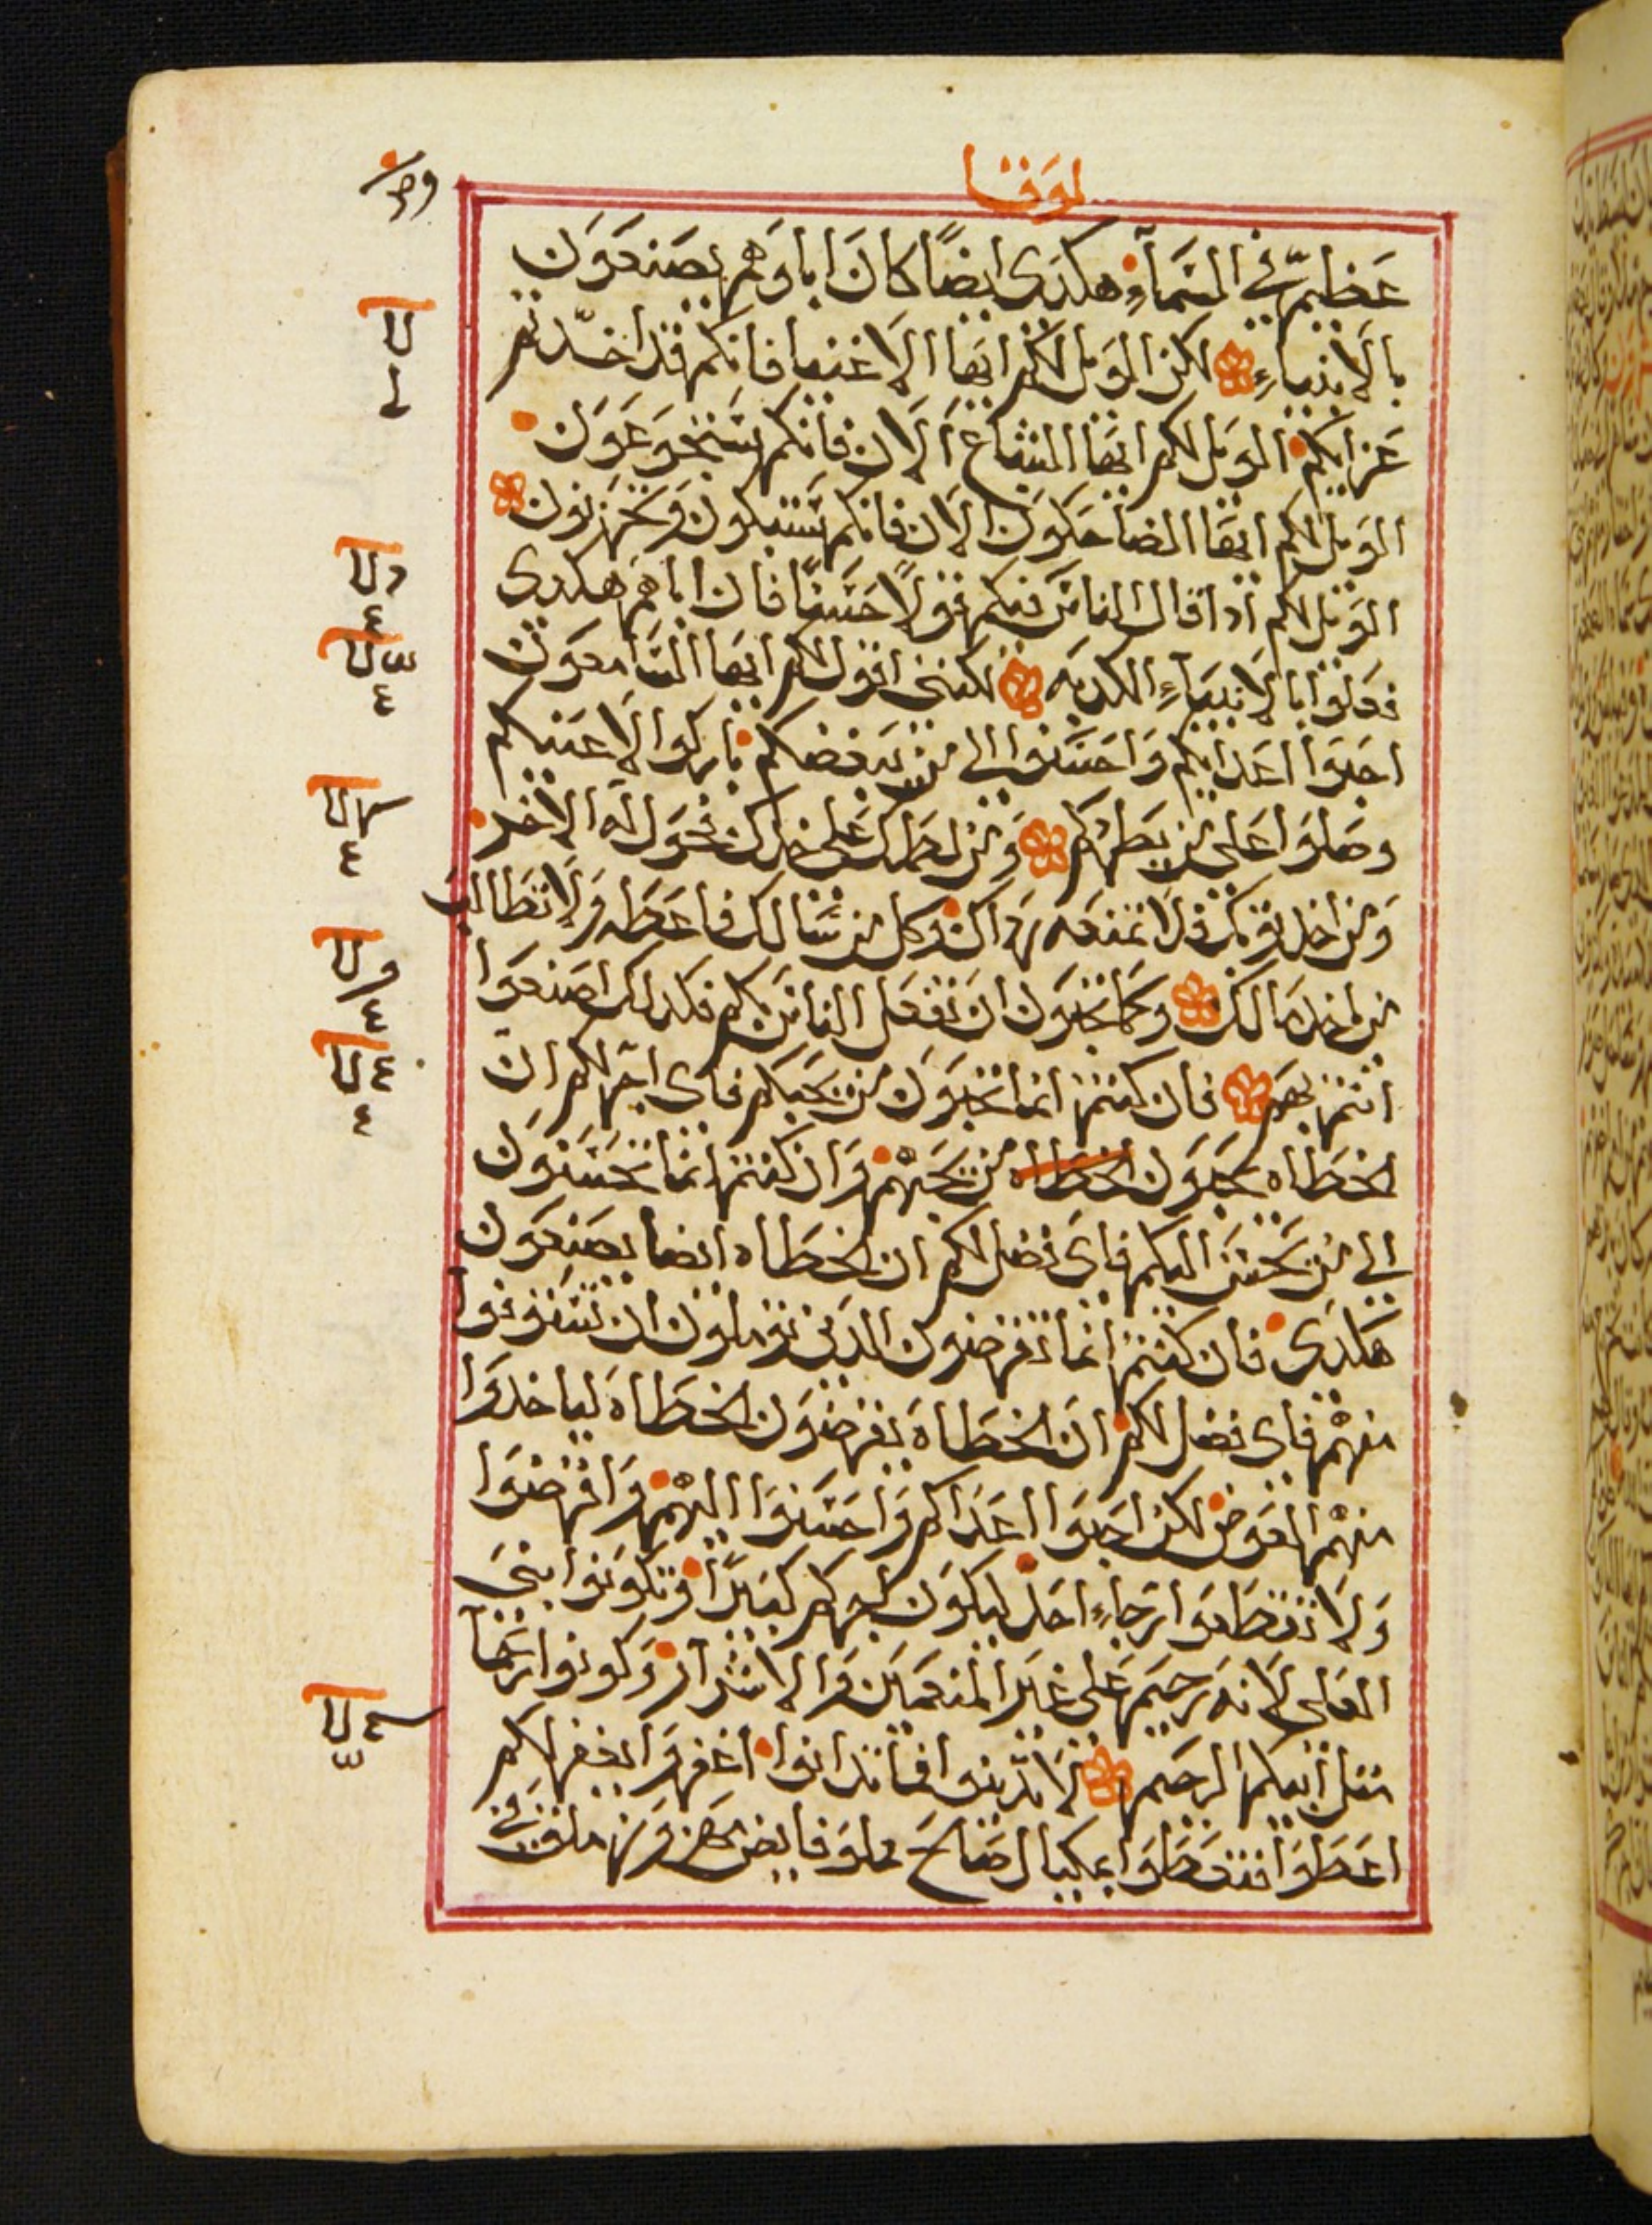 لوقا
عظيم في السماء هكدى ايضًا كان اباوهم يصنعون
بالانبياء لكن الويل لكم ايها الاغنيا فانكم قد اخدتم
عزايكم الويل لكم ايها الشباع الان فانكم ستجوعون
الويل لكم ايها الضاحكون الان فانكم ستبكون وتحزنون
الويل لكم ادا قال الناس فيكم قولًا حسنًا فان اباهم هكدى
فعلوا بالانبياء الكدبه لكنني اقول لكم ايها السامعون
احبوا اعدايكم واحسنوا الى من يبغضكم باركوا لاعنيكم
وصلوا على من يطردكم ومن لطمك على خدك فحول له الاخر
ومن اخد توبك فلا تمنعه رداك وكل من سالك فاعطه ولا تطالب
من اخد مالك وكما تحبون ان تفعل الناس بكم فكدلك اصنعوا
انتم بهم فان كنتم انما تحبون من يحبكم فاى اجر لكم ان
الخطاه يحبون الخطاه من يحبهم وان كنتم انما تحسنون
الى من يحسن اليكم فاى فضل لكم ان الخطاه ايضا يصنعون
هكدى فان كنتم انما تقرضون الدين توملون ان تستوفوا
منهم فاى فضل لكم ان الخطاه يقرضون الخطاه لياخدوا
منهم العوض لكن احبوا اعداكم واحسنوا اليهم واقرضوا
ولا تقطعوا رجاء احد ليكون اجركم كبيرًا وتكونوا بني
العلى لانه رحيم على غير المنعمين والاشرار وكونوا رحما
متل ابيكم الرحيم لا تدينوا فما تدانوا اغفروا يغفر لكم
اعطوا فتعطوا بمكيال صالح مملو فايض مهزوز ملقى في